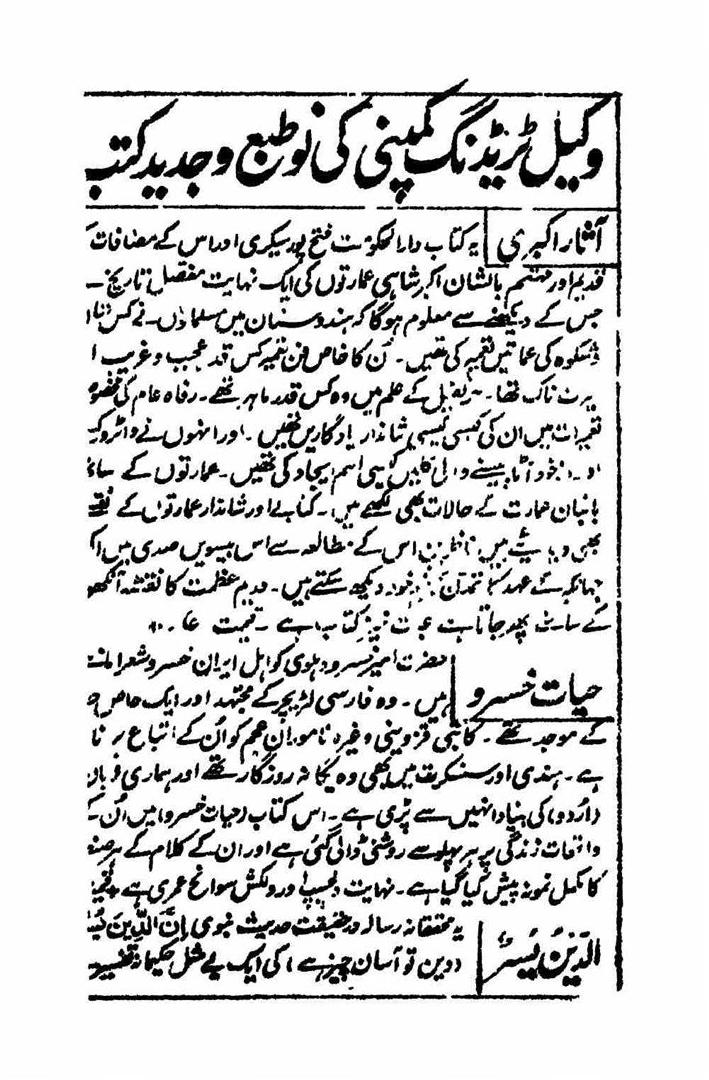 وکیل ٹریڈنگ کمپنی کی نو طبع و جدید کتب
آثار اکبری
یہ کتاب دارالحکومت فتح پور سیکری اور اس کے مضافات
قدیم اور مہتمم بالشان اکبر شاہی عمارتوں کی ایک نہایت مفصل تاریخ ۔
جس کے دیکھنے سے معلوم ہوگا کہ ہندوستان میں مسلمانوں نے کس
و شکوہ کی عمارتیں تعمیر کی تھیں ۔ اُن کا خاص فن تعمیر کس قدر عجیب و غریب
ناک تھا ۔ کے علم میں وہ کس قدر ماہر تھے ۔ رفاہ عام کی
تعمیرات میں ان کی کیسی کیسی شاندار یادگاریں تھیں ۔ اور انہوں نے واٹر
خود آٹا پیسنے والی کلیں کیسی اہم ایجاد کی تھیں ۔ عمارتوں کے
بانیان عمارت کے حالات بھی لکھے ہیں ۔ کتابے اور شاندار عمارتوں کے نقشے
بھی ہیں ناظرین اس کے مطالعہ سے اس بیسویں صدی میں
عہد کا تمدن دیکھ سکتے ہیں ۔ قدیم عظمت کا نقشہ
کے سامنے پھر جاتا ہے کتاب ہے ۔ قیمت
حیات خسرو
حضرت امیر خسرو دہلوی کو اہل ایران خسرو شعرا
ہیں ۔ وہ فارسی لٹریچر کے مجتہد اور ایک خاص
کے موجد تھے ۔ کاتبی قزوینی وغیرہ نامورانِ عجم کو اُن کے اتباع پر
ہے ۔ ہندی اور سنسکرت میں بھی وہ یگانہ روزگار تھے اور ہماری
(اُردو) کی بنیاد انہیں سے پڑی ہے ۔ اس کتاب (حیات خسرو) میں اُن
واقعات زندگی پر ہر پہلو سے روشنی ڈالی گئی ہے اور ان کے کلام کے ہر
کا مکمل نمونہ پیش کیا گیا ہے ۔ نہایت دلچسپ اور دلکش سوانح عمری ہے
الدّین یُسرٌ
یہ محققانہ رسالہ درحقیقت حدیث نبوی اِنَّ الدِّینَ
(دین تو آسان چیز ہے) کی ایک بے مثل حکیمانہ تفسیر